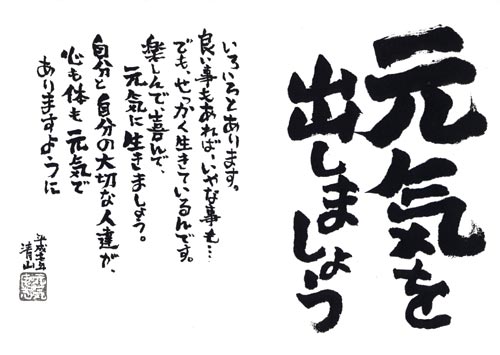 元気を
出しましょう
いろいろとあります。
良い事もあれば、いやな事も…
でも、せっかく生きているんです。
楽しんで、喜んで、
元気に生きましょう。
自分と自分の大切な人達が、
心も体も元気で
ありますように
清山